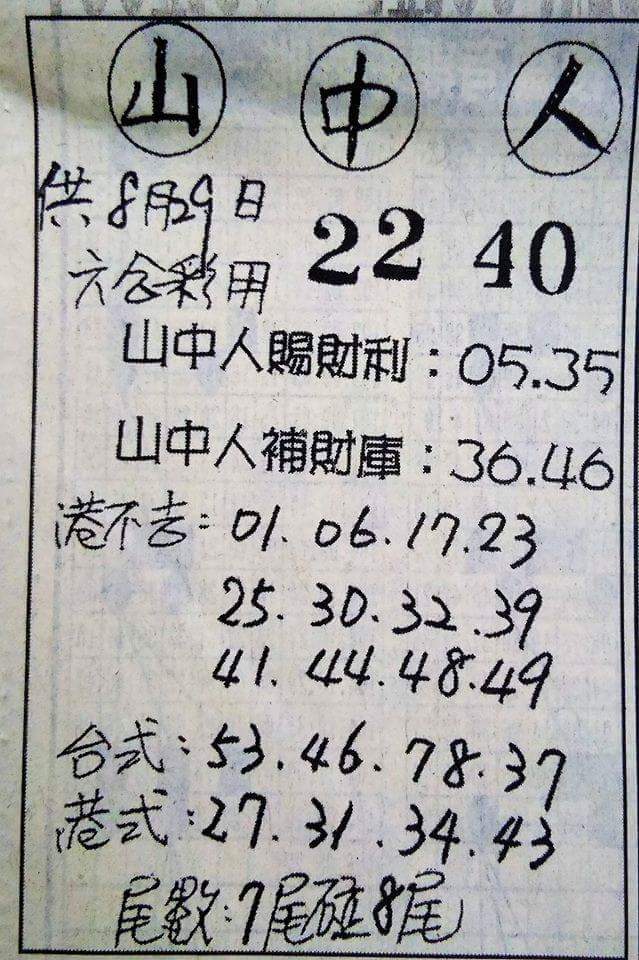 山中人
供8月29日
六合彩用
22 40
山中人賜財利：05.35
山中人補財庫：36.46
港不吉：01.06.17.23
25.30.32.39
41.44.48.49
台式：53.46.78.37
港式：27.31.34.43
尾數：7尾碰8尾